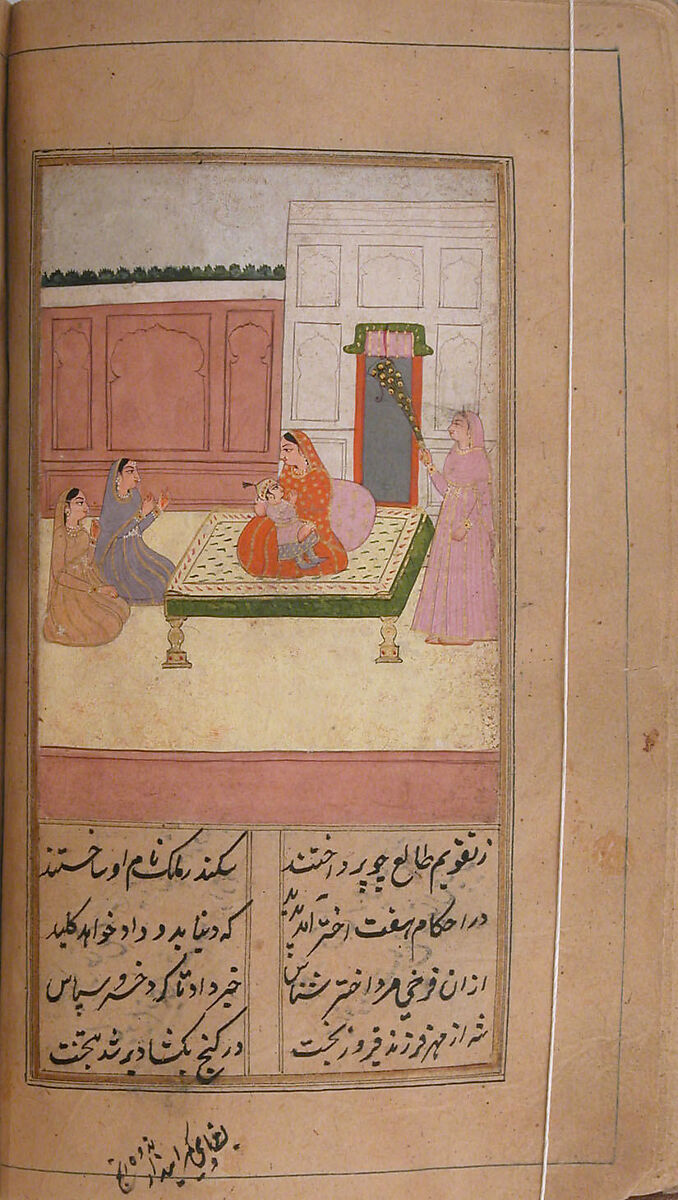 ز تقویم طالع چو پرداختند سکندر ملک نام او ساختند
در احکام هفت اختر آمد پدید که دنیا بدو داد خواهد کلید
ازان فرخی مرد اختر شناس خبر داد تا کرد خسرو سپاس
شه از مهر فرزند فیروز بخت در کنج بکشاد بر شد بتخت